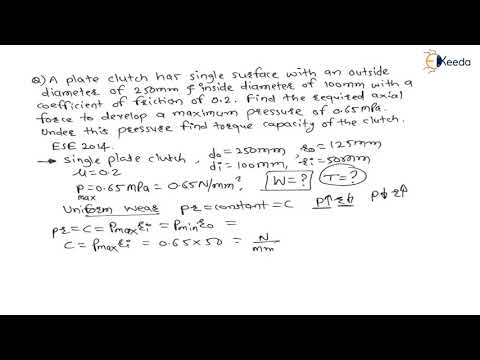 Ekeeda
Q) A plate clutch has single surface with an outside
diameter of 250mm & inside diameter of 100mm with a
coefficient of friction of 0.2. Find the required axial
force to develop a maximum pressure of 0.65 mpa.
Under this pressure find torque capacity of the clutch.
ESE 2014.
→ Single plate clutch, do = 250mm, ro = 125mm
μ = 0.2 di = 100mm, ri = 50mm
Pmax = 0.65 mPa = 0.65 N/mm², W = ? T = ?
Uniform wear pr = constant = C P↑ r↓ P↓ r↑
pr = C = Pmax ri = Pmin ro =
C = Pmax ri = 0.65 × 50 = N/mm